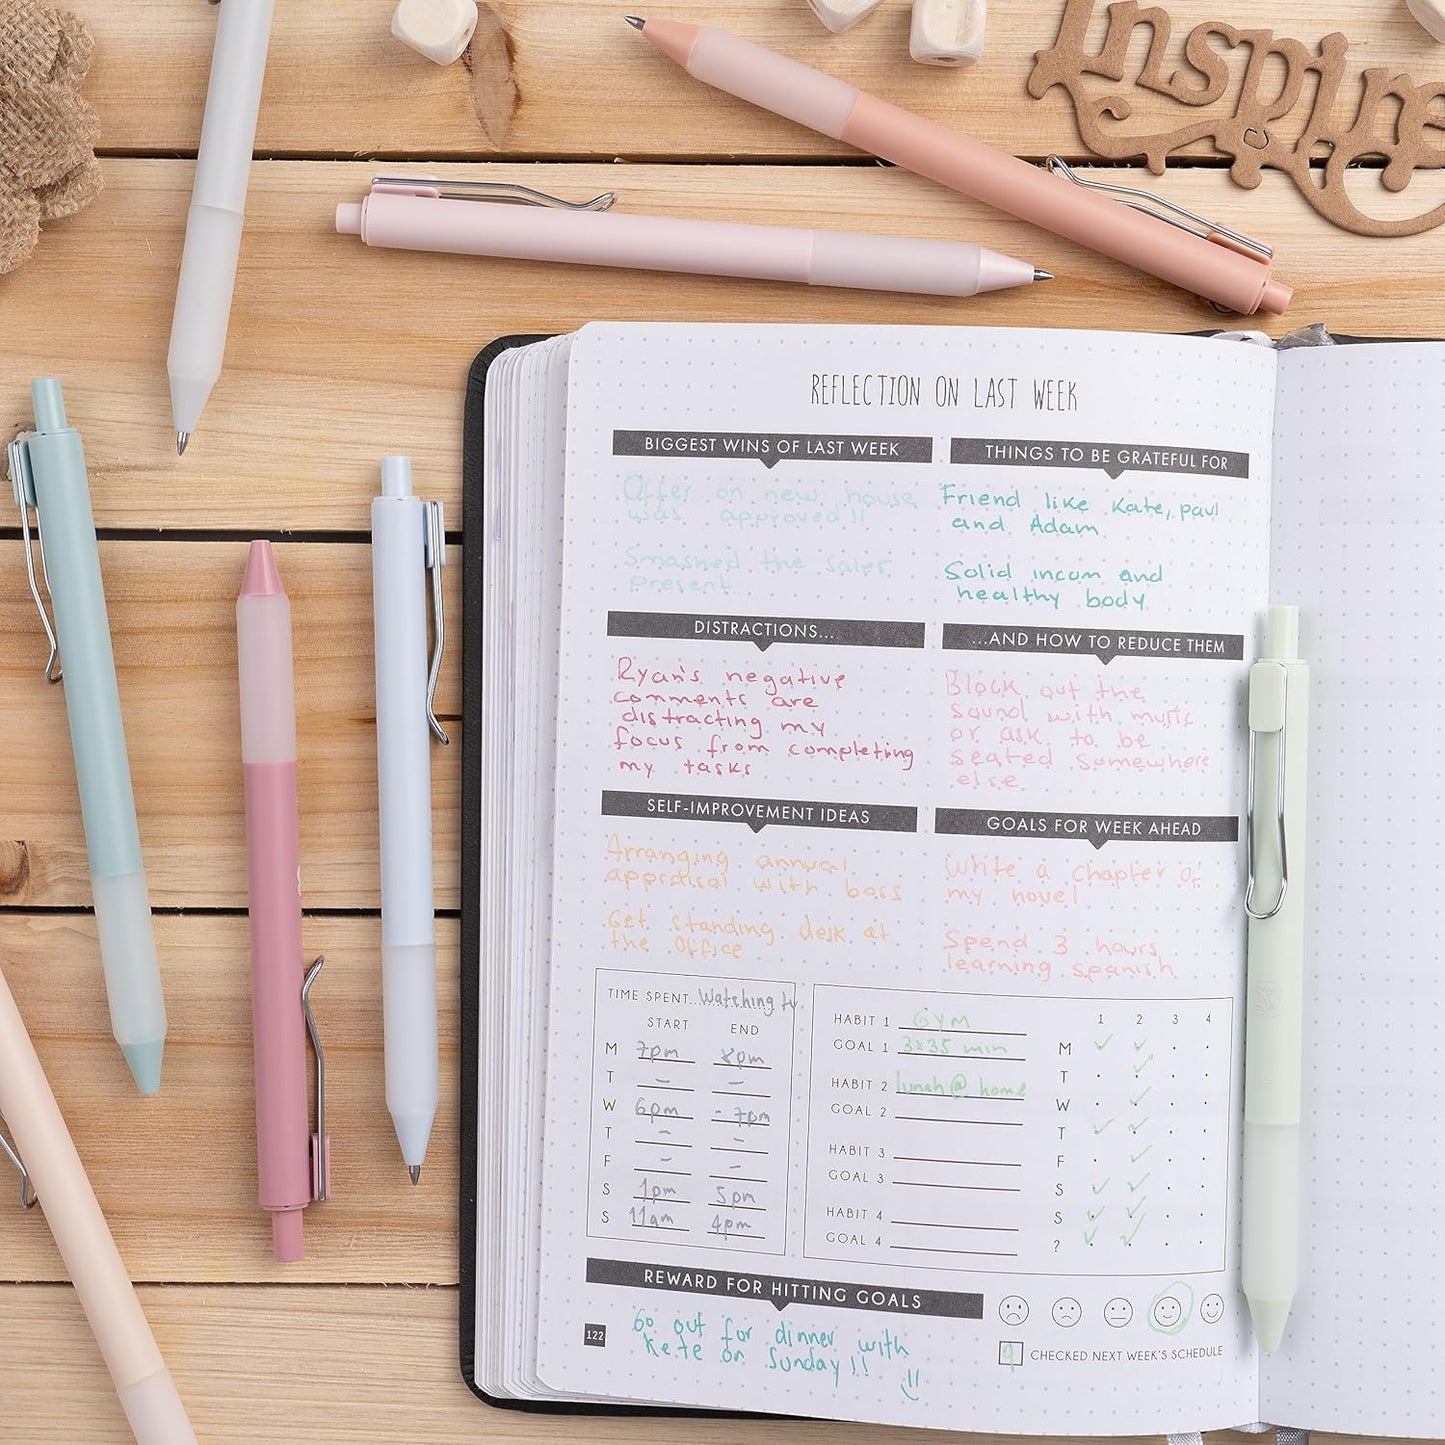 Inspire
REFLECTION ON LAST WEEK
BIGGEST WINS OF LAST WEEK
Offer on new house
was approved!!
Smashed the sales
present.
THINGS TO BE GRATEFUL FOR
Friend like Kate, paul
and Adam
Solid incom and
healthy body
DISTRACTIONS...
Ryan's negative
comments are
distracting my
focus from completing
my tasks
...AND HOW TO REDUCE THEM
Block out the
sound with music
or ask to be
seated somewhere
else.
SELF-IMPROVEMENT IDEAS
Arranging annual
appraisal with boss
Get standing desk at
the office
GOALS FOR WEEK AHEAD
Write a chapter of
my novel
Spend 3 hours
learning spanish
TIME SPENT...Watching tv
START END
M 7pm 8pm
T - -
W 6pm - 7pm
T - -
F - -
S 1pm 5pm
S 11am 4pm
HABIT 1 GYM
GOAL 1 3x35 min
HABIT 2 lunch @ home
GOAL 2
HABIT 3
GOAL 3
HABIT 4
GOAL 4
1 2 3 4
M ✓ ✓
T ✓
W ✓
T ✓ ✓
F ✓
S ✓ ✓
S ✓ ✓
? ✓ ✓
REWARD FOR HITTING GOALS
Go out for dinner with
Kete on Sunday!!
CHECKED NEXT WEEK'S SCHEDULE
122